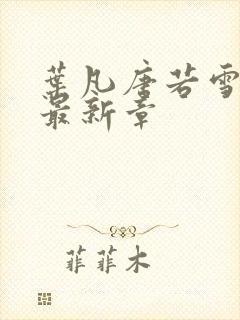 葉凡唐若雪
最新章
菲菲木